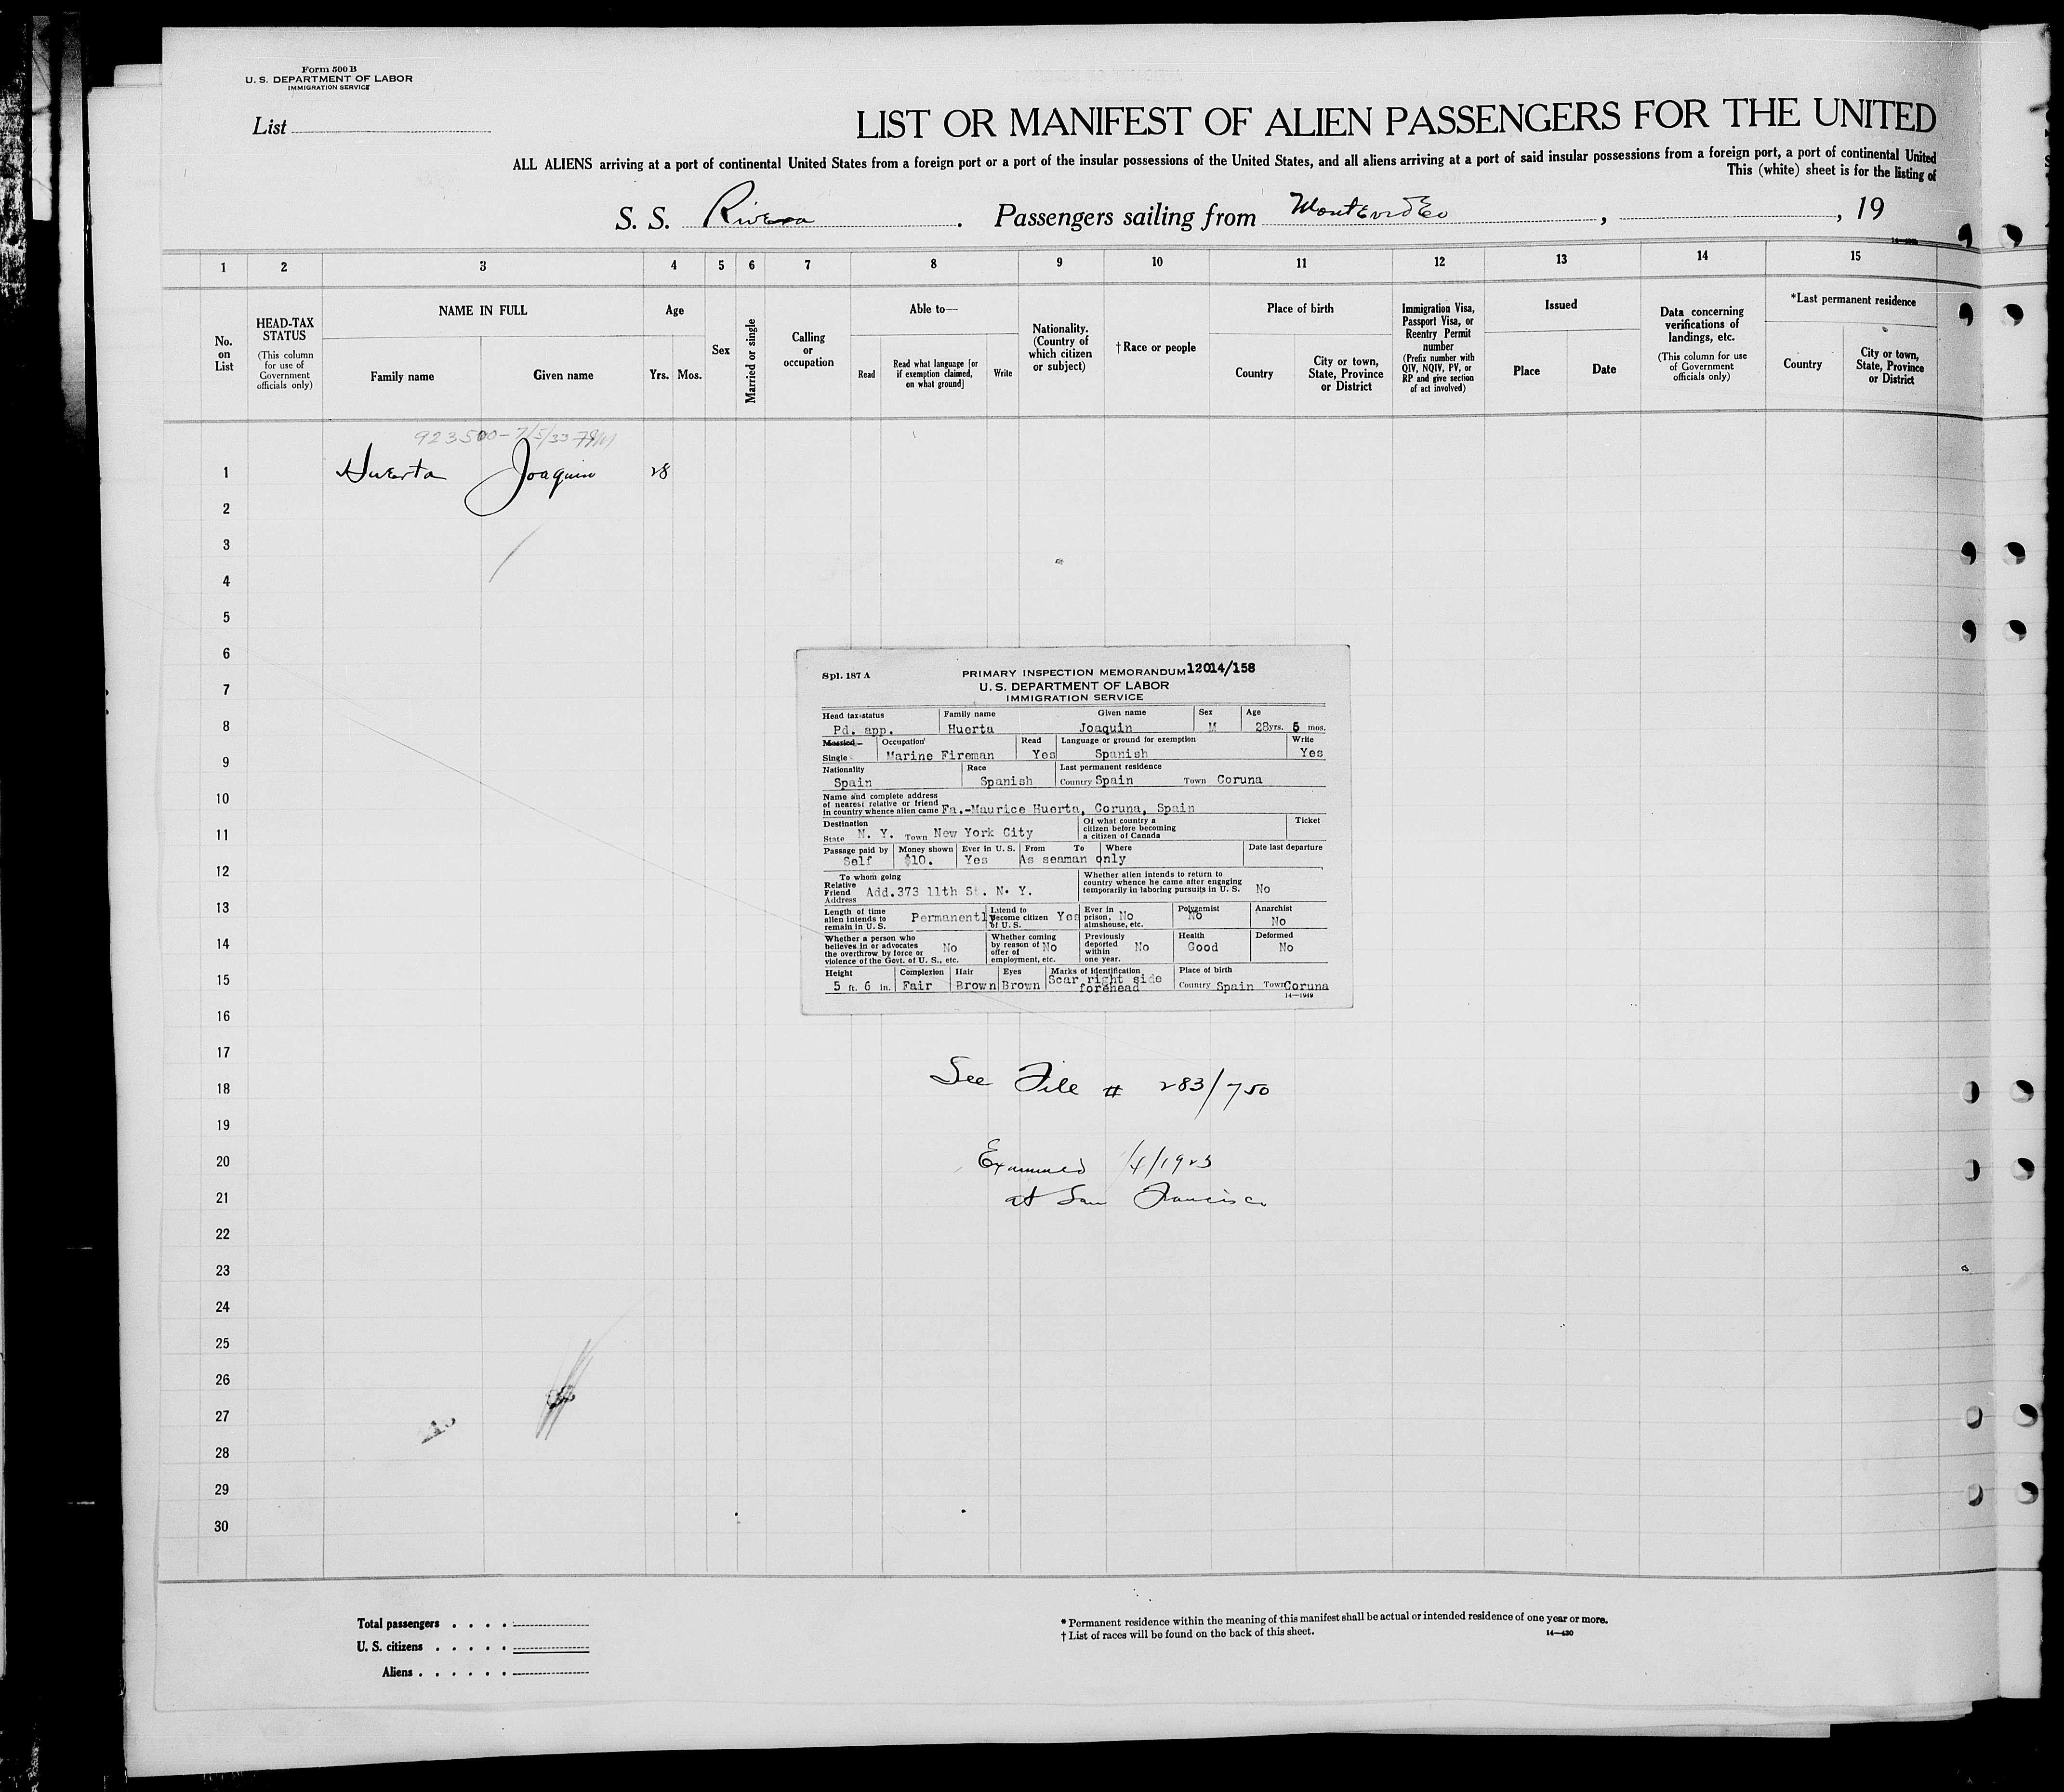 Form 500 B
U. S. DEPARTMENT OF LABOR
IMMIGRATION SERVICE
List
LIST OR MANIFEST OF ALIEN PASSENGERS FOR THE UNITED
ALL ALIENS arriving at a port of continental United States from a foreign port or a port of the insular possessions of the United States, and all aliens arriving at a port of said insular possessions from a foreign port, a port of continental United
This (white) sheet is for the listing of
S. S. Rivera . Passengers sailing from Montevideo , , 19
1 2 3 4 5 6 7 8 9 10 11 12 13 14 15
No. on List
HEAD-TAX STATUS
(This column for use of Government officials only)
NAME IN FULL
Family name Given name
Age
Yrs. Mos.
Sex
Married or single
Calling or occupation
Able to—
Read
Read what language [or if exemption claimed, on what ground]
Write
Nationality. (Country of which citizen or subject)
† Race or people
Place of birth
Country
City or town, State, Province or District
Immigration Visa, Passport Visa, or Reentry Permit number
(Prefix number with QIV, NQIV, PV, or RP and give section of act involved)
Issued
Place Date
Data concerning verifications of landings, etc.
(This column for use of Government officials only)
*Last permanent residence
Country
City or town, State, Province or District
923500 - 7/5/33
1 Huerta Joaquin 28
2
3
4
5
6
7
8
9
10
11
12
13
14
15
16
17
18
19
20
21
22
23
24
25
26
27
28
29
30
Spl. 187 A PRIMARY INSPECTION MEMORANDUM 12014/158
U. S. DEPARTMENT OF LABOR
IMMIGRATION SERVICE
Head tax status Family name Given name Sex Age
Pd. app. Huerta Joaquin M 28 yrs. 5 mos.
Married Occupation Read Language or ground for exemption Write
Single Marine Fireman Yes Spanish Yes
Nationality Race Last permanent residence
Spain Spanish Country Spain Town Coruna
Name and complete address
of nearest relative or friend
in country whence alien came Fa.-Maurice Huerta, Coruna, Spain
Destination Of what country a citizen before becoming a citizen of Canada Ticket
State N. Y. Town New York City
Passage paid by Money shown Ever in U. S. From To Where Date last departure
Self $10. Yes As seaman only
To whom going Whether alien intends to return to country whence he came after engaging temporarily in laboring pursuits in U. S. No
Relative
Friend Add. 373 11th St. N. Y.
Address
Length of time alien intends to remain in U. S. Permanently Intend to become citizen of U. S. Yes Ever in prison, almshouse, etc. No Polygamist No Anarchist No
Whether a person who believes in or advocates the overthrow by force or violence of the Govt. of U. S., etc. No Whether coming by reason of offer of employment, etc. No Previously deported within one year. No Health Good Deformed No
Height Complexion Hair Eyes Marks of identification Place of birth
5 ft. 6 in. Fair Brown Brown Scar right side forehead Country Spain Town Coruna
14—1949
See File # 283/750
Examined 1/4/1923
at San Francisco
Total passengers . . . .
U. S. citizens . . . . .
Aliens . . . . . .
* Permanent residence within the meaning of this manifest shall be actual or intended residence of one year or more.
† List of races will be found on the back of this sheet. 14—430